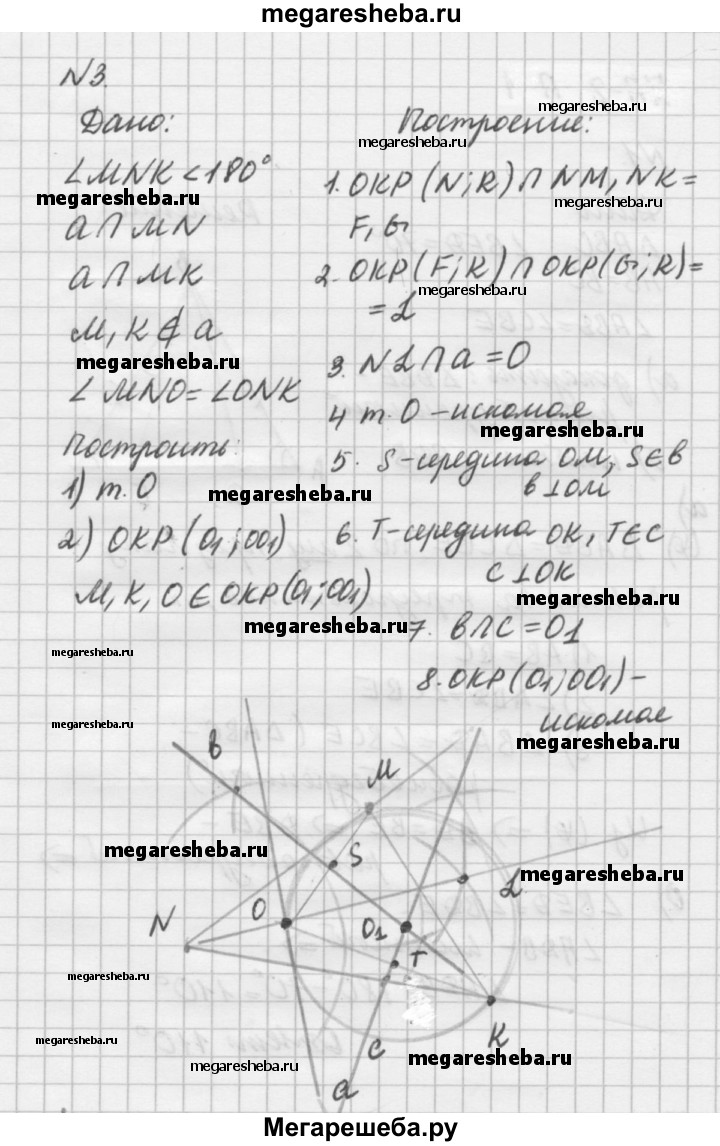 megaresheba.ru
N3.
Дано:
∠MNK < 180°
a ∩ MN
a ∩ MK
M, K ∉ a
∠MNO = ∠ONK
Построить:
1) т. O
2) ОКР (O1; OO1)
M, K, O ∈ ОКР(O1; OO1)
Построение:
1. ОКР (N; R) ∩ NM, NK =
F, G
2. ОКР(F; R) ∩ ОКР(G; R) =
= L
3. NL ∩ a = O
4 т. O – искомая
5. S – середина OM, S ∈ b
b ⊥ OM
6. T – середина OK, T ∈ c
c ⊥ OK
7. b ∩ c = O1
8. ОКР (O1; OO1) –
искомая
megaresheba.ru
megaresheba.ru
megaresheba.ru
megaresheba.ru
megaresheba.ru
megaresheba.ru
megaresheba.ru
megaresheba.ru
megaresheba.ru
megaresheba.ru
megaresheba.ru
megaresheba.ru
megaresheba.ru
megaresheba.ru
megaresheba.ru
megaresheba.ru
megaresheba.ru
megaresheba.ru
megaresheba.ru
megaresheba.ru
b
M
S
L
N
O
O1
T
K
c
a
Мегарешеба.ру